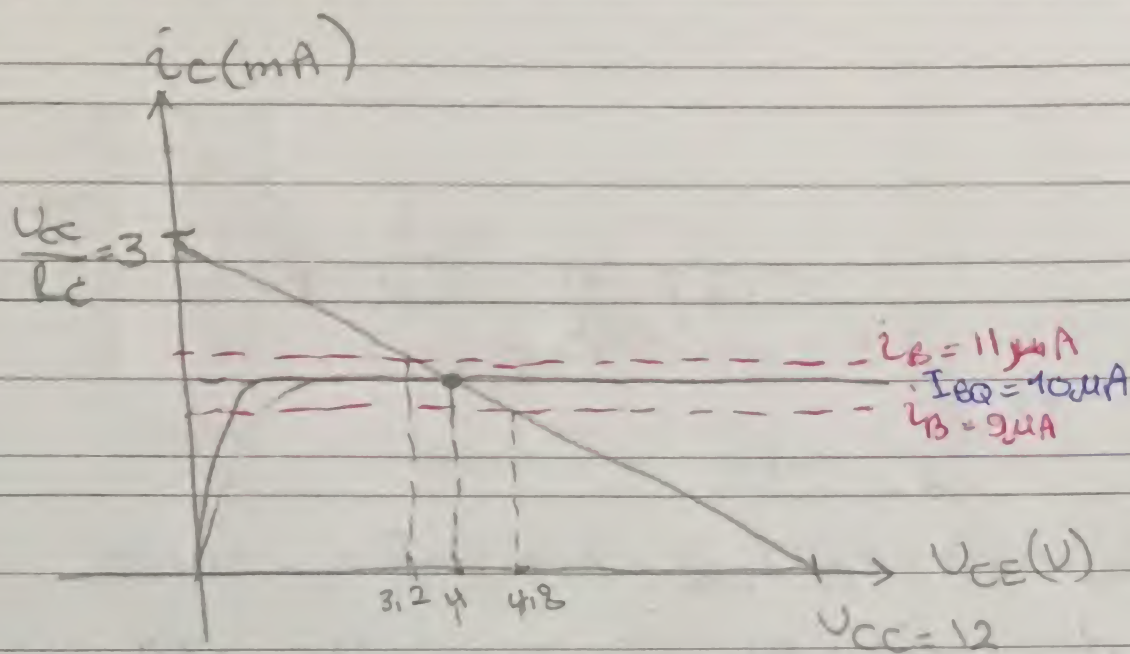 ic(mA)
Ucc/Rc = 3
iB = 11 µA
IBQ = 10 µA
iB = 9 µA
3,2 4 4,8
UCE(V)
UCC = 12